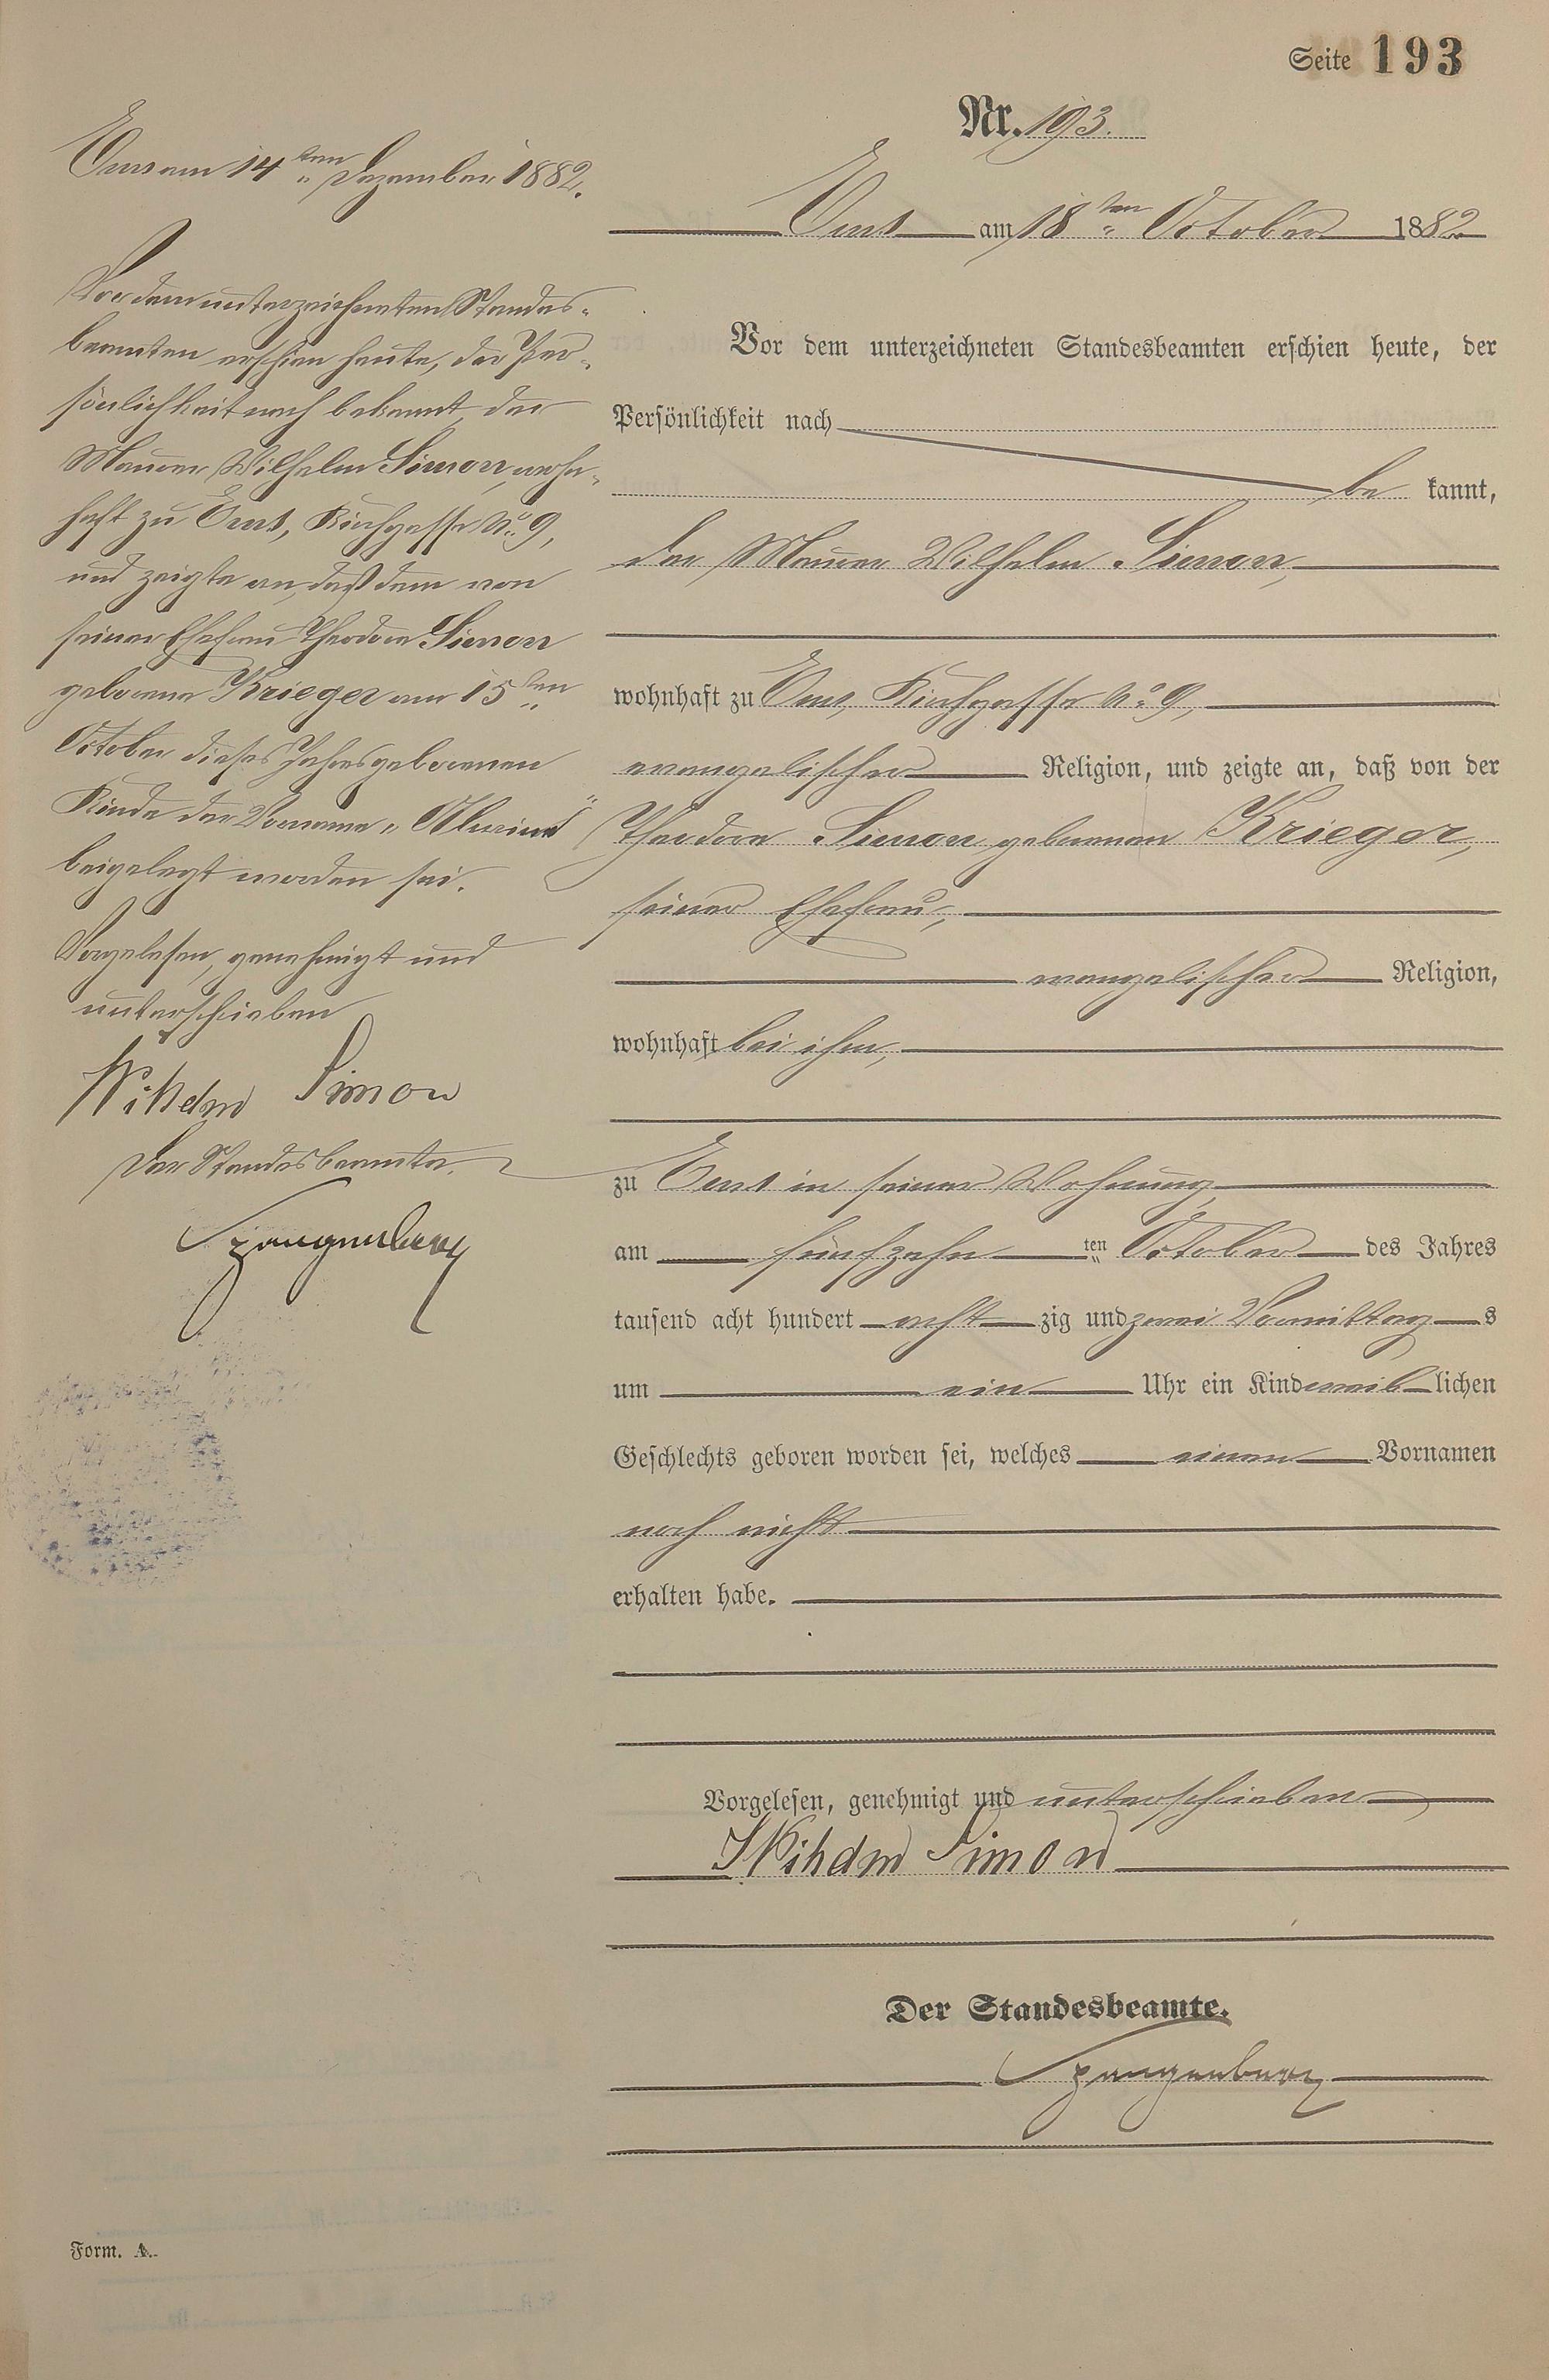 Seite 193
Nr. 193.
Ems am 18ten October 1882
Vor dem unterzeichneten Standesbeamten erschien heute, der
Persönlichkeit nach
be kannt,
der Maurer Wilhelm Simon,
wohnhaft zu Ems, Kirchgasse No 9,
evangelischer Religion, und zeigte an, daß von der
Theodore Simon geborenen Krieger,
seiner Ehefrau,
evangelischer Religion,
wohnhaft bei ihm,
zu Ems in seiner Wohnung,
am fünfzehn ten October des Jahres
tausend acht hundert acht zig und zwei Vormittag s
um ein Uhr ein Kind weib lichen
Geschlechts geboren worden sei, welches einen Vornamen
noch nicht
erhalten habe.
Vorgelesen, genehmigt und unterschrieben
Wilhelm Simon
Der Standesbeamte.
Spangenberg
Ems am 14ten Dezember 1882.
Vor dem unterzeichneten Standes-
beamten erschien heute, der Per-
sönlichkeit nach bekannt, der
Maurer Wilhelm Simon, wohn-
haft zu Ems, Kirchgasse No 9,
und zeigte an, daß dem von
seiner Ehefrau Theodore Simon
geborene Krieger am 15ten
October dieses Jahres geborenen
Kinde der Vorname
beigelegt worden sei.
Vorgelesen, genehmigt und
unterschrieben
Wilhelm Simon
Der Standesbeamte.
Spangenberg
Form. A.